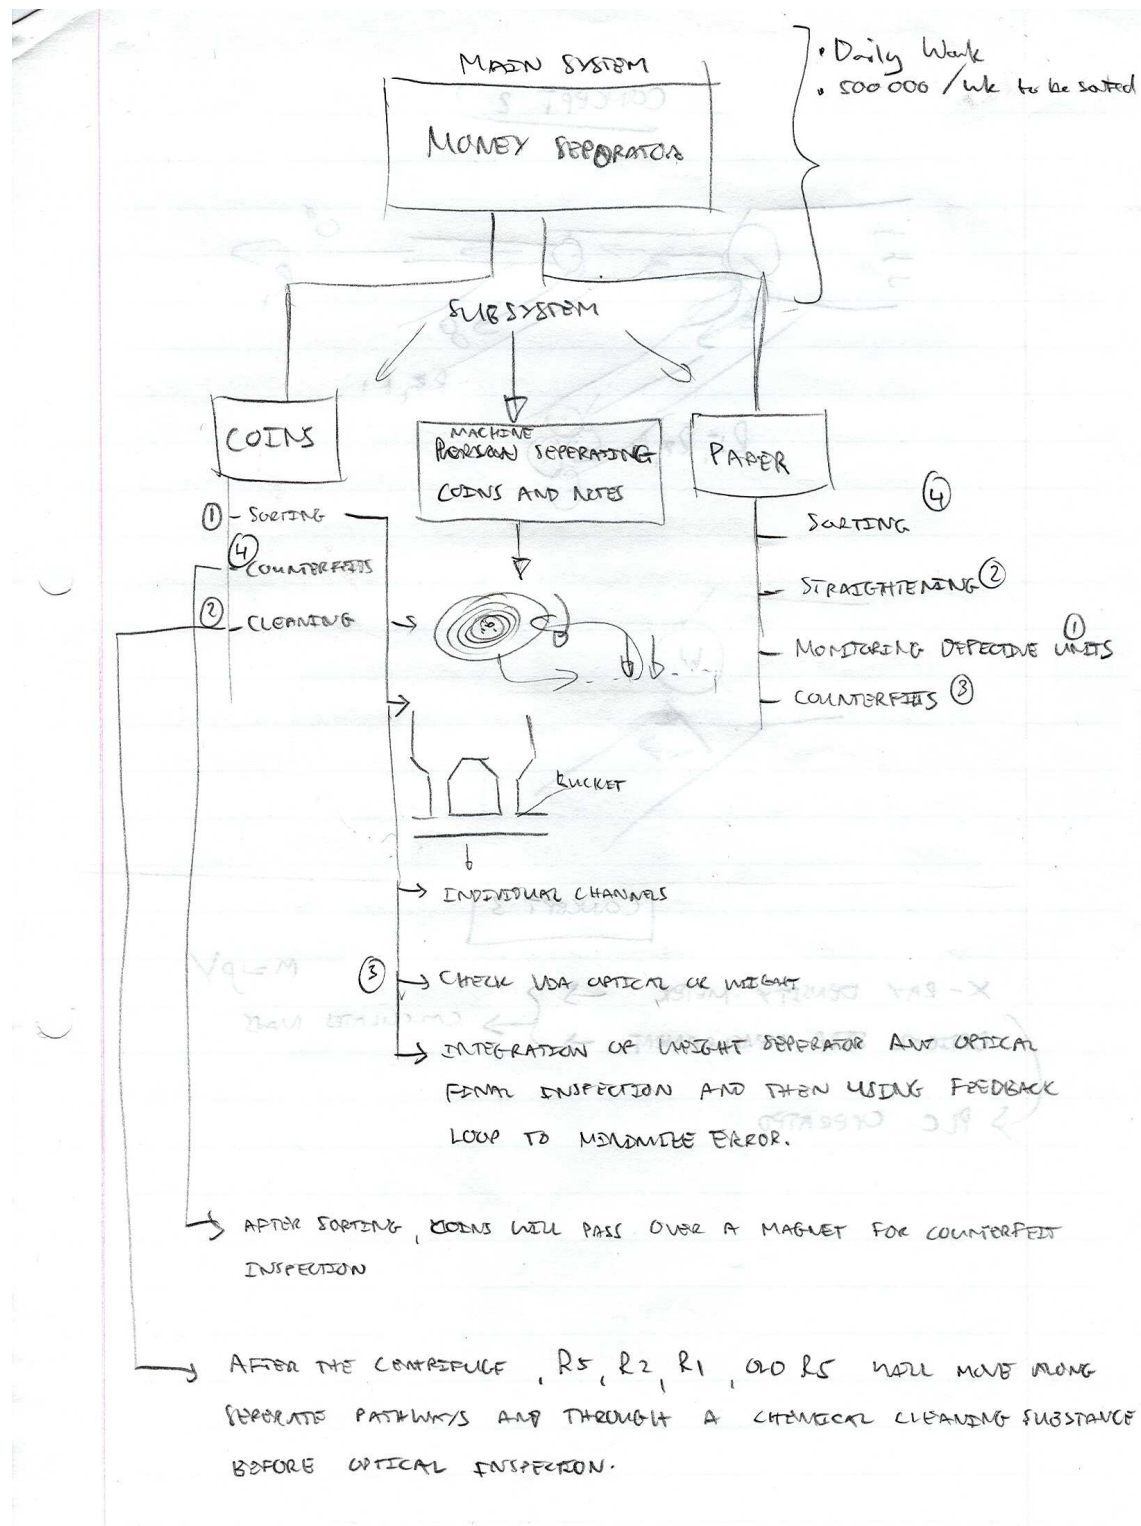 MAIN SYSTEM
MONEY SEPARATOR
• Daily Work
• 500 000 / wk to be sorted
SUBSYSTEM
COINS
① - SORTING
④ - COUNTERFEITS
② - CLEANING
MACHINE
PERSON SEPERATING
COINS AND NOTES
PAPER
SORTING ④
STRAIGHTENING ②
MONITORING DEFECTIVE UNITS ①
COUNTERFEITS ③
BUCKET
INDIVIDUAL CHANNELS
③ CHECK VIA OPTICAL OR WEIGHT
INTEGRATION OF WEIGHT SEPERATOR AND OPTICAL
FINAL INSPECTION AND THEN USING FEEDBACK
LOOP TO MINIMIZE ERROR.
AFTER SORTING, COINS WILL PASS OVER A MAGNET FOR COUNTERFEIT
INSPECTION
AFTER THE CENTRIFUGE, R5, R2, R1, OLD R5 WILL MOVE ALONG
SEPERATE PATHWAYS AND THROUGH A CHEMICAL CLEANING SUBSTANCE
BEFORE OPTICAL INSPECTION.
CONCEPT 2
CONCEPT 3
M=ρV
X-RAY DENSITY METER
PLC OPERATED